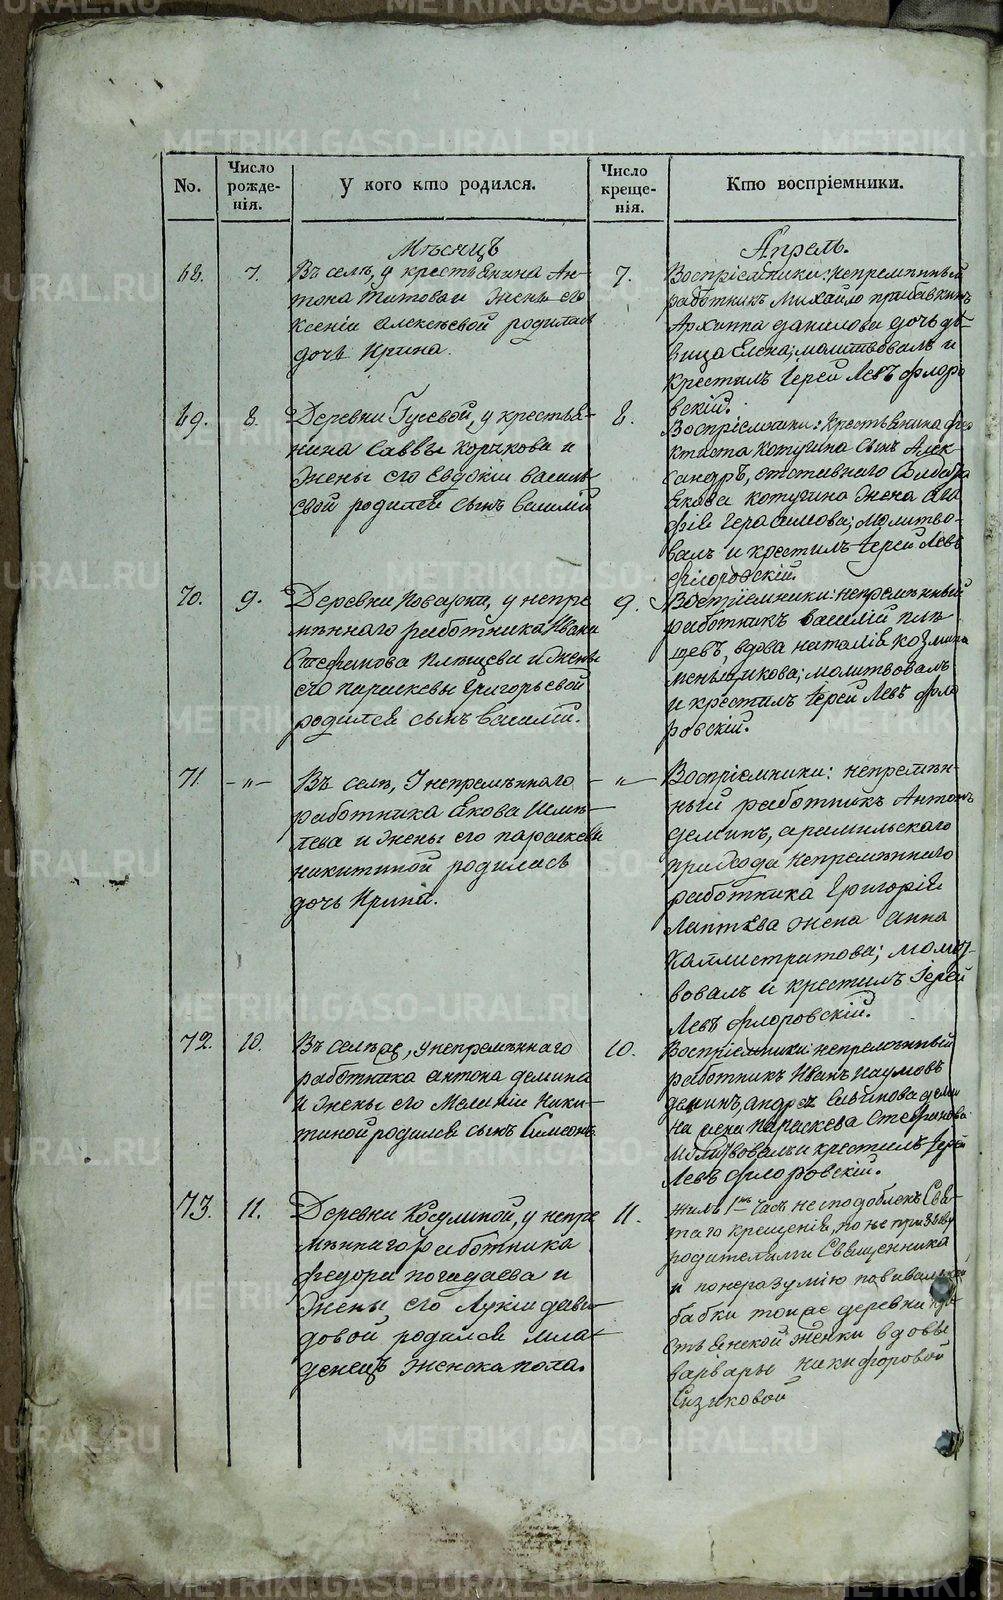 No.
Число рожде-нія.
У кого кто родился.
Число креще-нія.
Кто воспріемники.
Мѣсяцъ
Апрель.
68.
7.
Въ селѣ, у крестьянина Ан-
тона Титова и жены его
Ксеніи Алексѣевой родилась
дочь Ирина.
7.
Воспріемники: непремѣнный
работникъ Михайло
Архиппа Данилова дочь дѣ-
вица Елена; молитвовалъ и
крестилъ Іерей Левъ Флоро
вскій.
69.
8.
Деревни Гусевой, у крестья-
нина Саввы Корикова и
жены его Евдокіи Василь
евой родился сынъ Василій
8.
Воспріемники: крестьянина Фео
ктиста Котугина сынъ Алек
сандръ, отставнаго Солдата
Якова Котугина жена Ага
фія Герасимова; молитво-
валъ и крестилъ Іерей Левъ
Флоровскій.
70.
9.
Деревни Поварни, у непре
мѣннаго работника Ивана
Стефанова Плѣщева и жены
его Параскевы Григорьевой
родился сынъ Василій.
9.
Воспріемники: непремѣнный
работникъ Василій Плѣ
щевъ, вдова Наталія Козмина
Меньшикова; молитвовалъ
и крестилъ Іерей Левъ Фло
ровскій.
71.
-"-
Въ селѣ, У непремѣннаго
работника Якова
и жены его Параскевы
Никитиной родилась
дочь Ирина.
-"-
Воспріемники: непремѣн-
ный работникъ Антонъ
Деминъ, Арамильскаго
прихода непремѣннаго
работника Григорія
Лаптева жена Анна
Каллистратова; молит-
вовалъ и крестилъ Іерей
Левъ Флоровскій.
72.
10.
Въ селѣ же, у непремѣннаго
работника Антона Демина
и жены его Меланіи Ники-
тиной родился сынъ Симеонъ.
10.
Воспріемники: непремѣнный
работникъ Иванъ Наумовъ
Деминъ, Андрея Деми
на жена Параскева Стефанова
молитвовалъ и крестилъ Іерей
Левъ Флоровскій.
73.
11.
Деревни Косулиной, у непре
мѣннаго работника
Федора Погадаева и
жены его Лукіи Дави-
довой родился мла-
денецъ женска пола.
11.
жилъ 1нъ часъ не сподобленъ Свя-
таго крещенія, по не призыву
родителями Священника
и по неразумію повивальной
бабки той же деревни кре
стьянской женки вдовы
Варвары Никифоровой
Сизиковой
METRIKI.GASO-URAL.RU